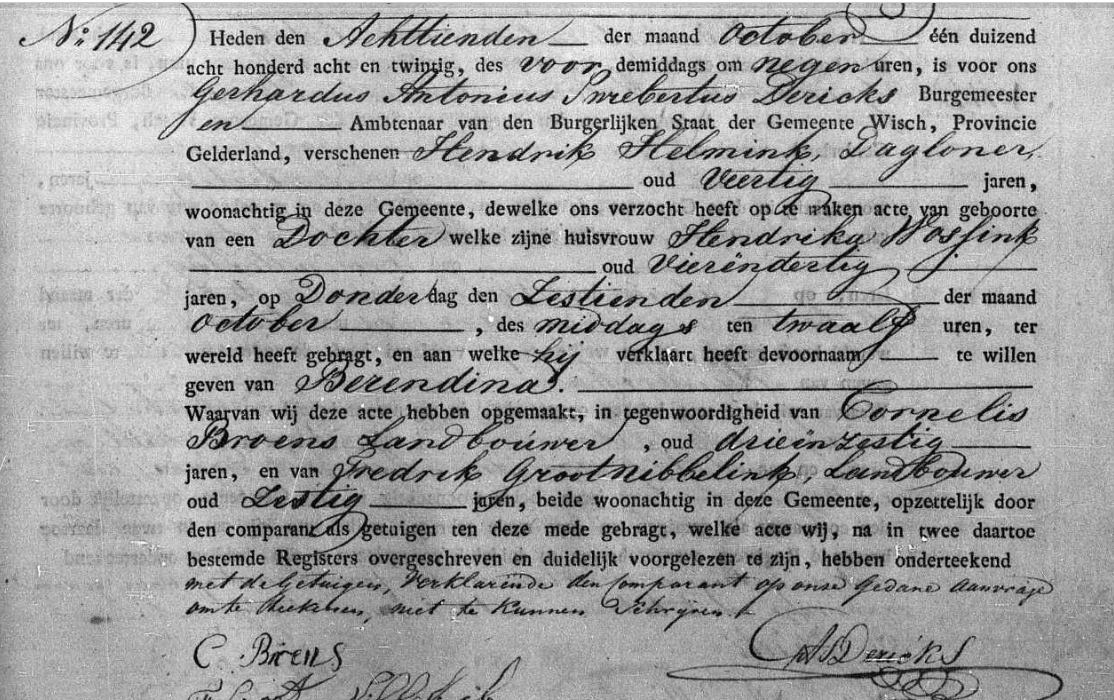 No. 142
Heden den Achttienden der maand October één duizend
acht honderd acht en twintig, des voor demiddags om negen uren, is voor ons
Gerhardus Antonius Swebertus Dericks Burgemeester
en Ambtenaar van den Burgerlijken Staat der Gemeente Wisch, Provincie
Gelderland, verschenen Hendrik Helmink, Dagloner,
oud Veertig jaren,
woonachtig in deze Gemeente, dewelke ons verzocht heeft op te maken acte van geboorte
van een Dochter welke zijne huisvrouw Hendrika Wossink
oud Vierëndertig
jaren, op Donderdag den Zestienden der maand
October, des middags ten twaalf uren, ter
wereld heeft gebragt, en aan welke hij verklaart heeft devoornaam te willen
geven van Berendina.
Waarvan wij deze acte hebben opgemaakt, in tegenwoordigheid van Cornelis
Broens Landbouwer, oud drieënzestig
jaren, en van Fredrik Grootnibbelink, Landbouwer
oud Zestig jaren, beide woonachtig in deze Gemeente, opzettelijk door
den comparant als getuigen ten deze mede gebragt, welke acte wij, na in twee daartoe
bestemde Registers overgeschreven en duidelijk voorgelezen te zijn, hebben onderteekend
met de Getuigen, Verklarende den Comparant op onse gedane aanvrage
omte teekenen, niet te kunnen Schrijven
C Broens
Dericks